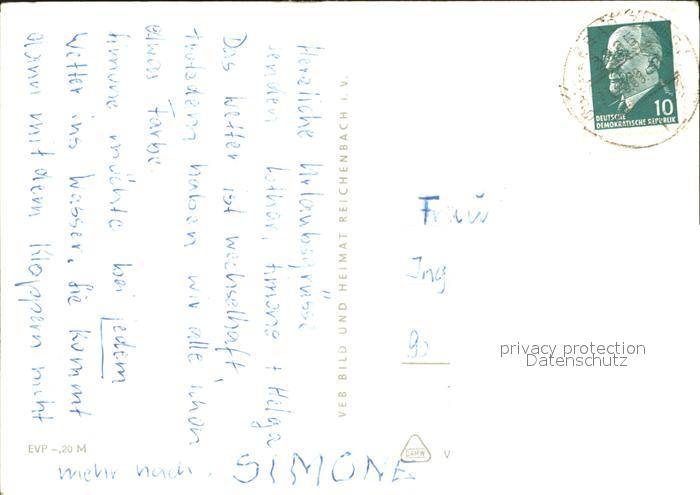 Herzliche Urlaubsgrüsse
senden Lothar, Simone + Helga
Das Wetter ist wechselhaft,
trotzdem haben wir alle schon
etwas Farbe.
Simone möchte bei jedem
Wetter ins Wasser, sie kommt
dann mit dem Kloppern nicht
mehr nach. SIMONE
VEB BILD UND HEIMAT REICHENBACH I. V.
EVP -,20 M
DAMW
V
10
DEUTSCHE
DEMOKRATISCHE REPUBLIK
Frau
Ing
privacy protection
Datenschutz